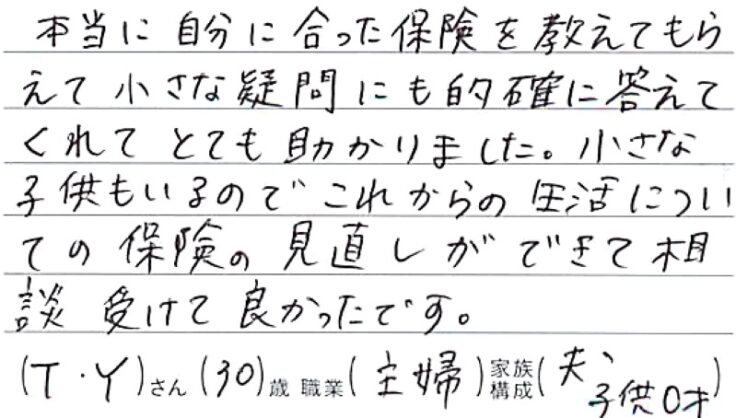 本当に自分に合った保険を教えてもら
えて小さな疑問にも的確に答えて
くれてとても助かりました。小さな
子供もいるのでこれからの生活につい
ての保険の見直しができて相
談受けて良かったです。
(T・Y)さん(30)歳 職業(主婦)家族構成(夫、子供0才)